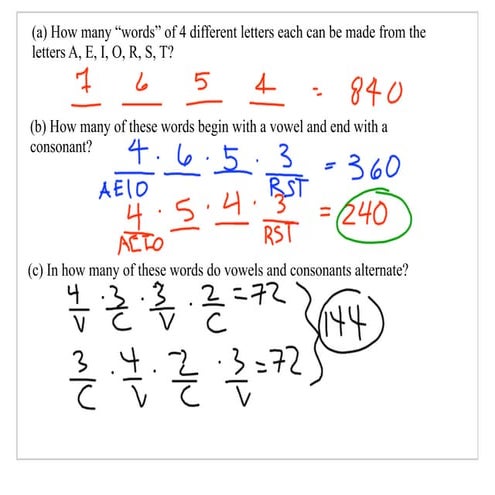 (a) How many “words” of 4 different letters each can be made from the
letters A, E, I, O, R, S, T?
7 6 5 4 = 840
(b) How many of these words begin with a vowel and end with a
consonant?
4 · 6 · 5 · 3 = 360
AEIO RST
4 · 5 · 4 · 3 = 240
AEIO RST
(c) In how many of these words do vowels and consonants alternate?
4 · 3 · 3 · 2 = 72
V C V C
144
3 · 4 · 2 · 3 = 72
C V C V